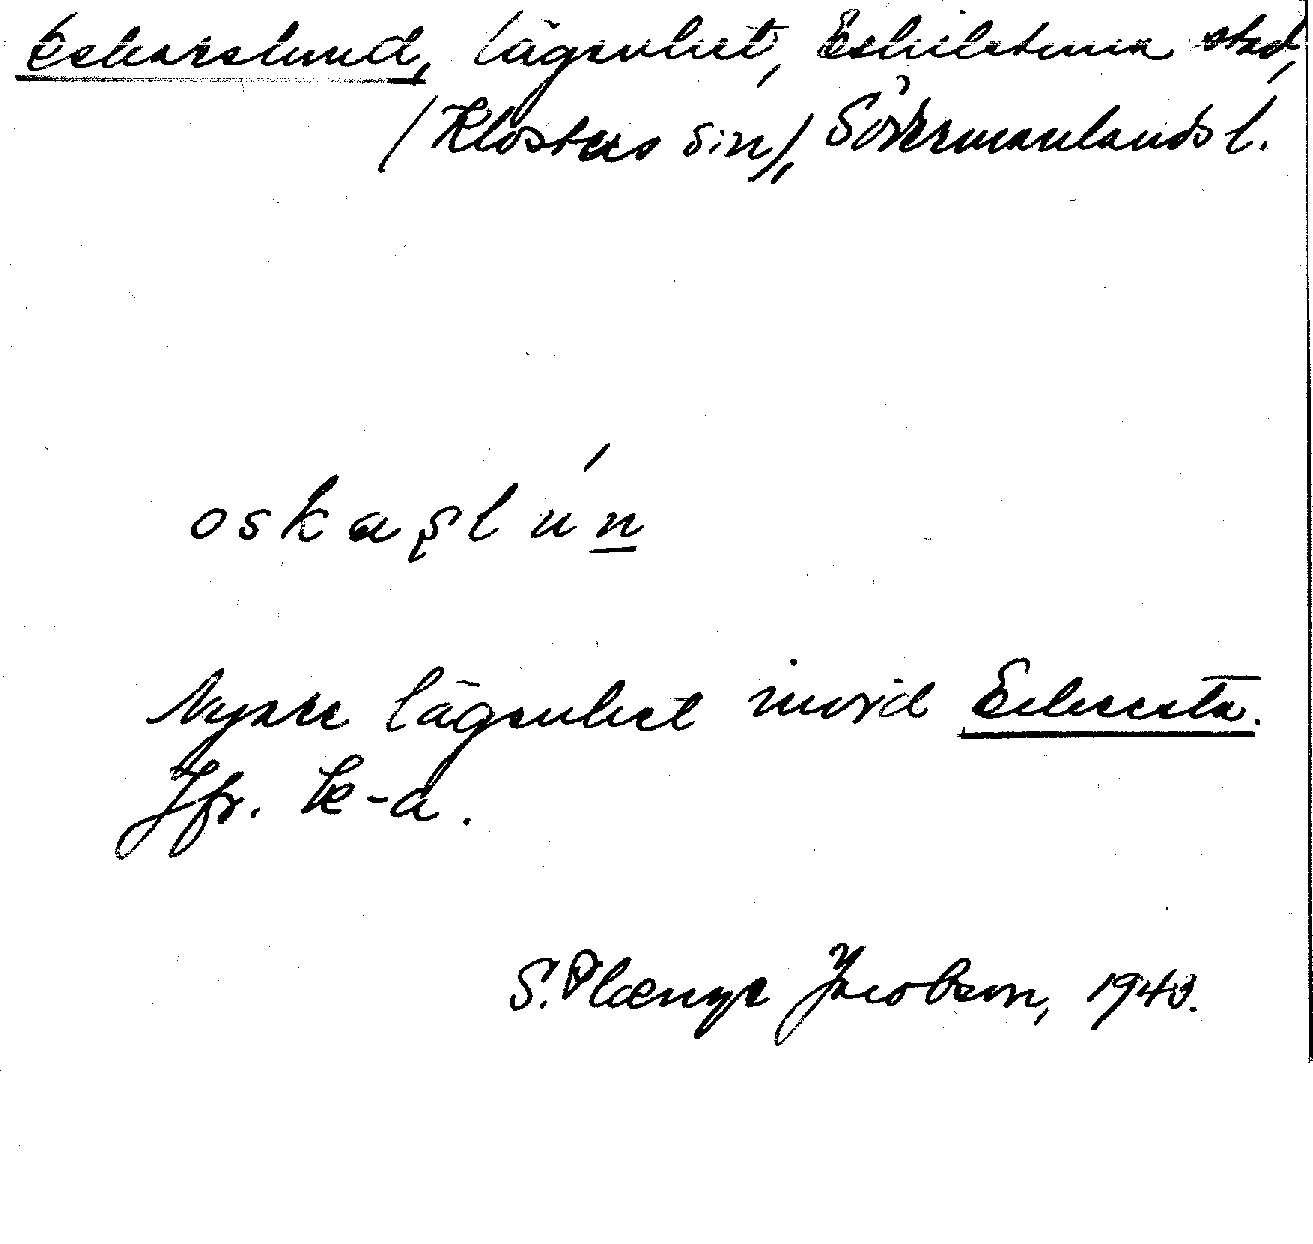 Eskarslund, lägenhet, Eskilstuna stad,
(Klosters sn), Södermanlands l.
oskaşlún
Nyare lägenhet invid
Jfr. k-a.
S. Plænge Jacobson, 1940.